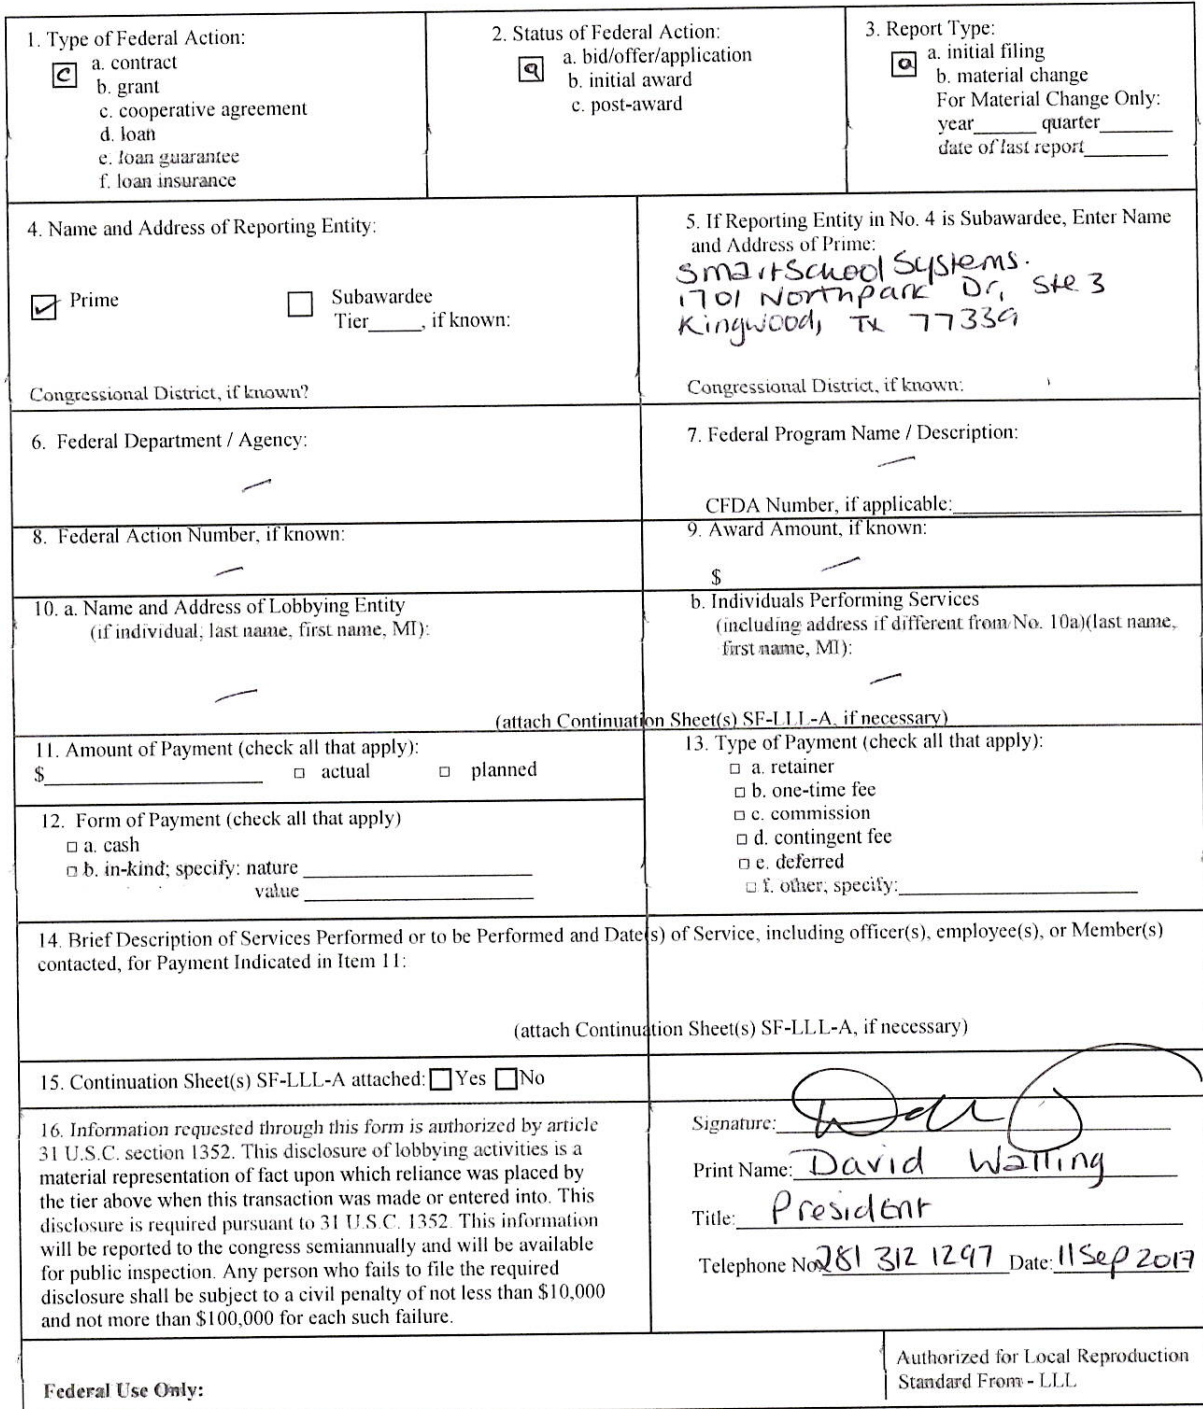 1. Type of Federal Action:
c
a. contract
b. grant
c. cooperative agreement
d. loan
e. loan guarantee
f. loan insurance
2. Status of Federal Action:
a
a. bid/offer/application
b. initial award
c. post-award
3. Report Type:
a
a. initial filing
b. material change
For Material Change Only:
year______ quarter______
date of last report______
4. Name and Address of Reporting Entity:
Prime
Subawardee
Tier_____, if known:
Congressional District, if known?
5. If Reporting Entity in No. 4 is Subawardee, Enter Name
and Address of Prime:
SmartSchool Systems.
1701 Northpark Dr, Ste 3
Kingwood, Tx 77339
Congressional District, if known:
6. Federal Department / Agency:
—
7. Federal Program Name / Description:
—
CFDA Number, if applicable:____________________
8. Federal Action Number, if known:
—
9. Award Amount, if known:
$ —
10. a. Name and Address of Lobbying Entity
(if individual; last name, first name, MI):
—
b. Individuals Performing Services
(including address if different from No. 10a)(last name,
first name, MI):
—
(attach Continuation Sheet(s) SF-LLL-A, if necessary)
11. Amount of Payment (check all that apply):
$____________________ □ actual □ planned
12. Form of Payment (check all that apply)
□ a. cash
□ b. in-kind; specify: nature ____________________
value ____________________
13. Type of Payment (check all that apply):
□ a. retainer
□ b. one-time fee
□ c. commission
□ d. contingent fee
□ e. deferred
□ f. other, specify:____________________
14. Brief Description of Services Performed or to be Performed and Date(s) of Service, including officer(s), employee(s), or Member(s)
contacted, for Payment Indicated in Item 11:
(attach Continuation Sheet(s) SF-LLL-A, if necessary)
15. Continuation Sheet(s) SF-LLL-A attached: □ Yes □ No
16. Information requested through this form is authorized by article
31 U.S.C. section 1352. This disclosure of lobbying activities is a
material representation of fact upon which reliance was placed by
the tier above when this transaction was made or entered into. This
disclosure is required pursuant to 31 U.S.C. 1352. This information
will be reported to the congress semiannually and will be available
for public inspection. Any person who fails to file the required
disclosure shall be subject to a civil penalty of not less than $10,000
and not more than $100,000 for each such failure.
Signature:
Print Name: David Watling
Title: President
Telephone No: 281 312 1297 Date: 11 Sep 2017
Federal Use Only:
Authorized for Local Reproduction
Standard From - LLL